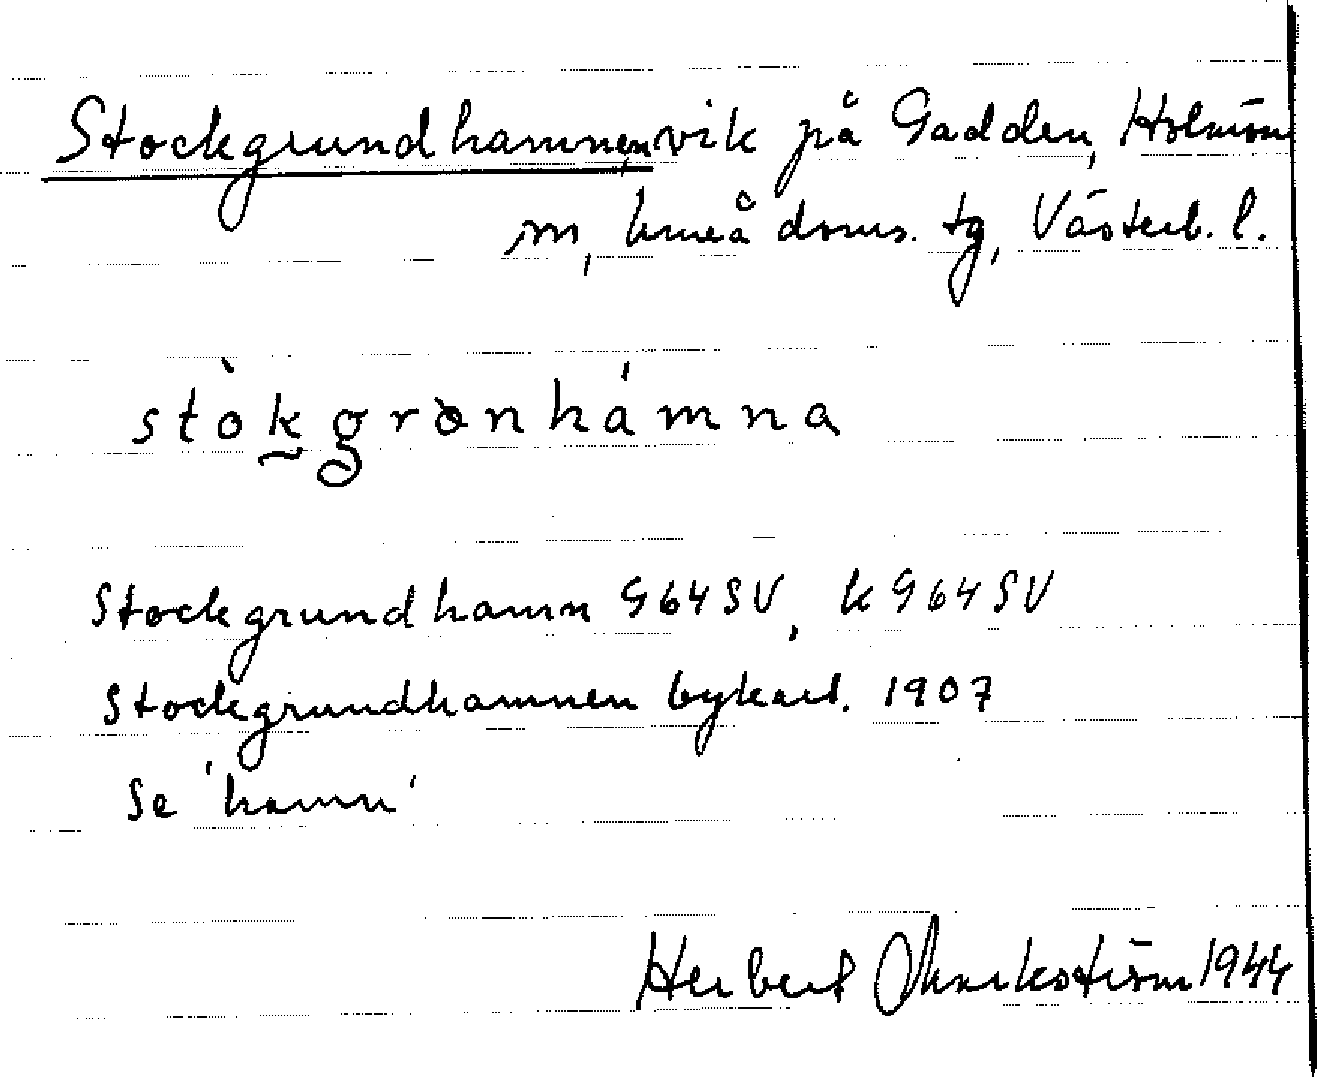 Stockgrundhamnen, vik på Gadden, Holmöns
sn, Umeå doms. tg, Västerb. l.
stòkgrònhámna
Stockgrundhamn G64SV, k G64SV
Stockgrundhamnen bykart. 1907
Se 'hamn'
Herbert 1944